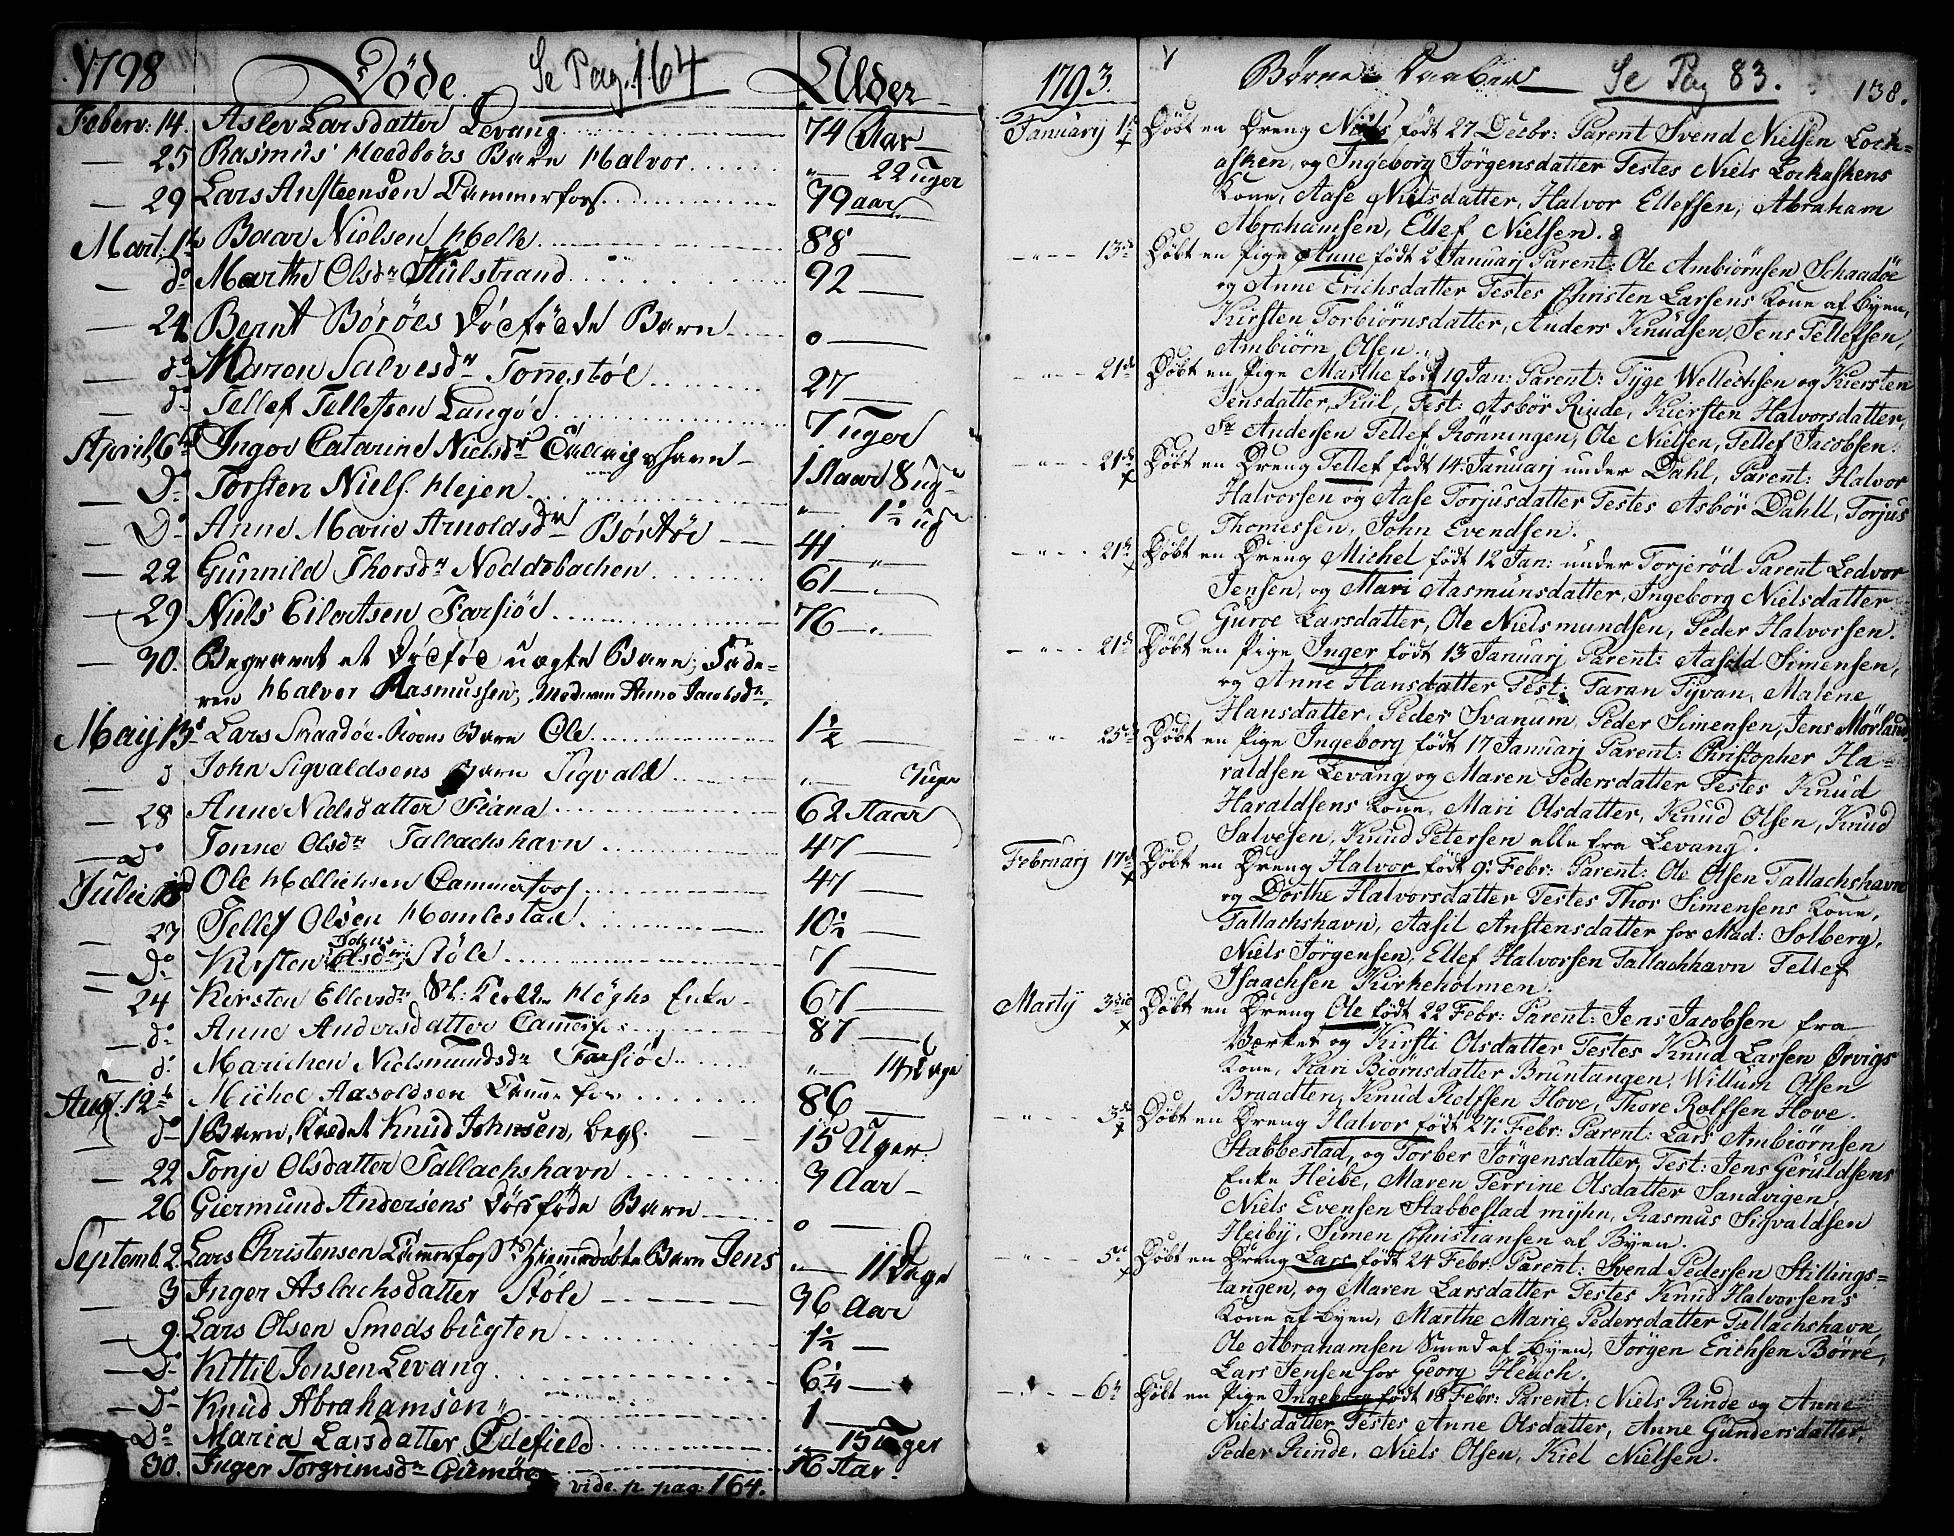 1798 Døde. Se Pag. 164 Alder
Feberv: 14. Aslev Larsdatter Levang 74 Aar
25 Rasmus Barn Halvor 22 uger
29 Lars Ansteensen 79 aar
Mart. Baar Nielsen 88
do Marthe Olsdr 92
24 Bernt Böröes Dödföde Barn 0
do Maren Salvesdr Tonestöl 27
do Tellef Tellefsen Langöe 7 uger
April 6 Inger Catarine Nielsdr 1 Aar 8 ug
Do Torsten Niels. Hejen 1½ ug
Do Anne Marie Arnoldsdr Börtöe 41
22 Gunnild Thorsdr 61
29 Niels Eilertsen Farsiöe 76
30. Begravet et Dödföd uægte Barn, Fade-
ren Halvor Rasmussen, Moderen Anne Jacobsdr.
Maij 13 Lars Skaadöe Barn Ole 1½
d John Sigvaldsens Barn Sigvald 3 uger
28 Anne Nielsdatter Fiane 62 Aar
Do Tonne Olsdr Tallachshavn 47
Julii 18 Ole 47
23 Tellef Olsen 10½
Do Kirsten Johns- Olsdr Stöle 7
24 Kirsten Ellevsdr Höghs Enke 67
do Anne Andersdatter 87
d Marichen Nielsmundsdr Farsiöe 14 Dage
Aug. 12 Michel Aasoldsen 86
do 1 Barn, Knud Johnsen, 15 Uger
22 Tonje Olsdatter Tallachshavn 3 Aar
26 Giermund Andersens Dödföde Barn 0
Septemb. 2. Lars Christensen Hiemedöbte Barn Jens 11 Dage
3 Inger Aslachsdatter Stöle 36 Aar
9. Lars Olsen Smedsbugten 1½
Do Kittil Jensen Levang 6¼
Do Knud Abrahamsen 1
Do Maria Larsdatter Ödefield 15 Uger
30. Inger Torgrimsdr 16 Aar
vide p. pag: 164.
1793. Börne Daaber Se Pag 83. 138.
Januarij 1 Döbt en Dreng Niels födt 27 Decbr: Parent Svend Nielsen Lock=
asken, og Ingeborg Jörgensdatter Testes Niels Lockaskens
Kone, Aase Nielsdatter, Halvor Ellefsen, Abraham
Abrahamsen, Ellef Nielsen.
13 Döbt en Pige Anne födt 2 Januarj Parent: Ole Ambiörnsen Schaadöe
og Anne Erichsdatter Testes Christen Larsens Kone af Byen,
Kirsten Torbiörnsdatter, Anders Knudsen, Jens Tellefsen,
Ambiörn Olsen.
21 Döbt en Pige Marthe födt 19 Jan: Parent: Tyge Wellechsen og Kiersten
Jensdatter, Kiil, Test: Asbör Rinde, Kiersten Halvorsdatter,
Andersen Tellef Rönningen, Ole Nielsen, Tellef Jacobsen.
21 Döbt en Dreng Tellef födt 14 Januarj under Dahl, Parent: Halvor
Halvorsen og Aase Torjusdatter Testes Asbör Dahll, Torjus
Thomessen, John Evendsen.
21 Döbt en Dreng Michel födt 12 Jan: under Torjeröd Parent Ledvor
Jensen, og Mari Aasmunsdatter, Ingeborg Nielsdatter
Gurve Larsdatter, Ole Nielsmundsen, Peder Halvorsen.
21 Döbt en Pige Inger födt 13 Januarj Parent: Aasold Simensen,
og Anne Hansdatter Test: Taran Tyvan, Malene
Hansdatter, Peder Svanum, Peder Simensen, Jens Mörland
25 Döbt en Pige Ingeborg födt 17 Januarj Parent: Christopher Ha-
raldsen Levang og Maren Pedersdatter Testes Knud
Haraldsens Kone, Mari Olsdatter, Knud Olsen, Knud
Salvesen, Knud Petersen alle fra Levang.
Februarj 17 Döbt en Dreng Halvor födt 9 Febr: Parent: Ole Olsen Tallachshavn
og Dorthe Halvorsdatter Testes Thor Simensens Kone,
Tallachshavn, Aasil Anstensdatter hos Mad: Solberg,
Niels Jörgensen, Ellef Halvorsen Tallachhavn Tellef
Isaachsen Kirkeholmen.
Martij 3 Döbt en Dreng Ole födt 22 Febr: Parent: Jens Jacobsen fra
Værket og Kirsti Olsdatter Testes Knud Larsen Örvigs
Kone, Kari Biörnsdatter Bruntangen, Willum Olsen
Braadten, Knud Rolfsen Hove, Thore Rolfsen Hove.
3 Döbt en Dreng Halvor födt 27 Febr: Parent: Lars Ambiörnsen
Stabbestad, og Torber Jörgensdatter, Test: Jens Geruldsens
Enke Heibe, Maren Terrine Olsdatter Sandvigen,
Niels Evensen Stabbestad mijhn, Rasmus Sigvaldsen
Heiby, Simen Christiansen af Byen.
5 Döbt en Dreng Lars födt 24 Febr: Parent: Svend Pedersen Stillings=
tangen, og Maren Larsdatter Testes Knud Halvorsens
Kone af Byen, Marthe Marie Pedersdatter Tallachshavn,
Ole Abrahamsen Smed af Byen, Jörgen Erichsen Börre,
Lars Jensen hos Georg Heuch.
6 Döbt en Pige Ingeborg födt 18 Febr: Parent: Niels Rinde og Anne
Nielsdatter Testes Anne Olsdatter, Anne Gundersdatter,
Peder Rinde, Niels Olsen, Kiel Nielsen.